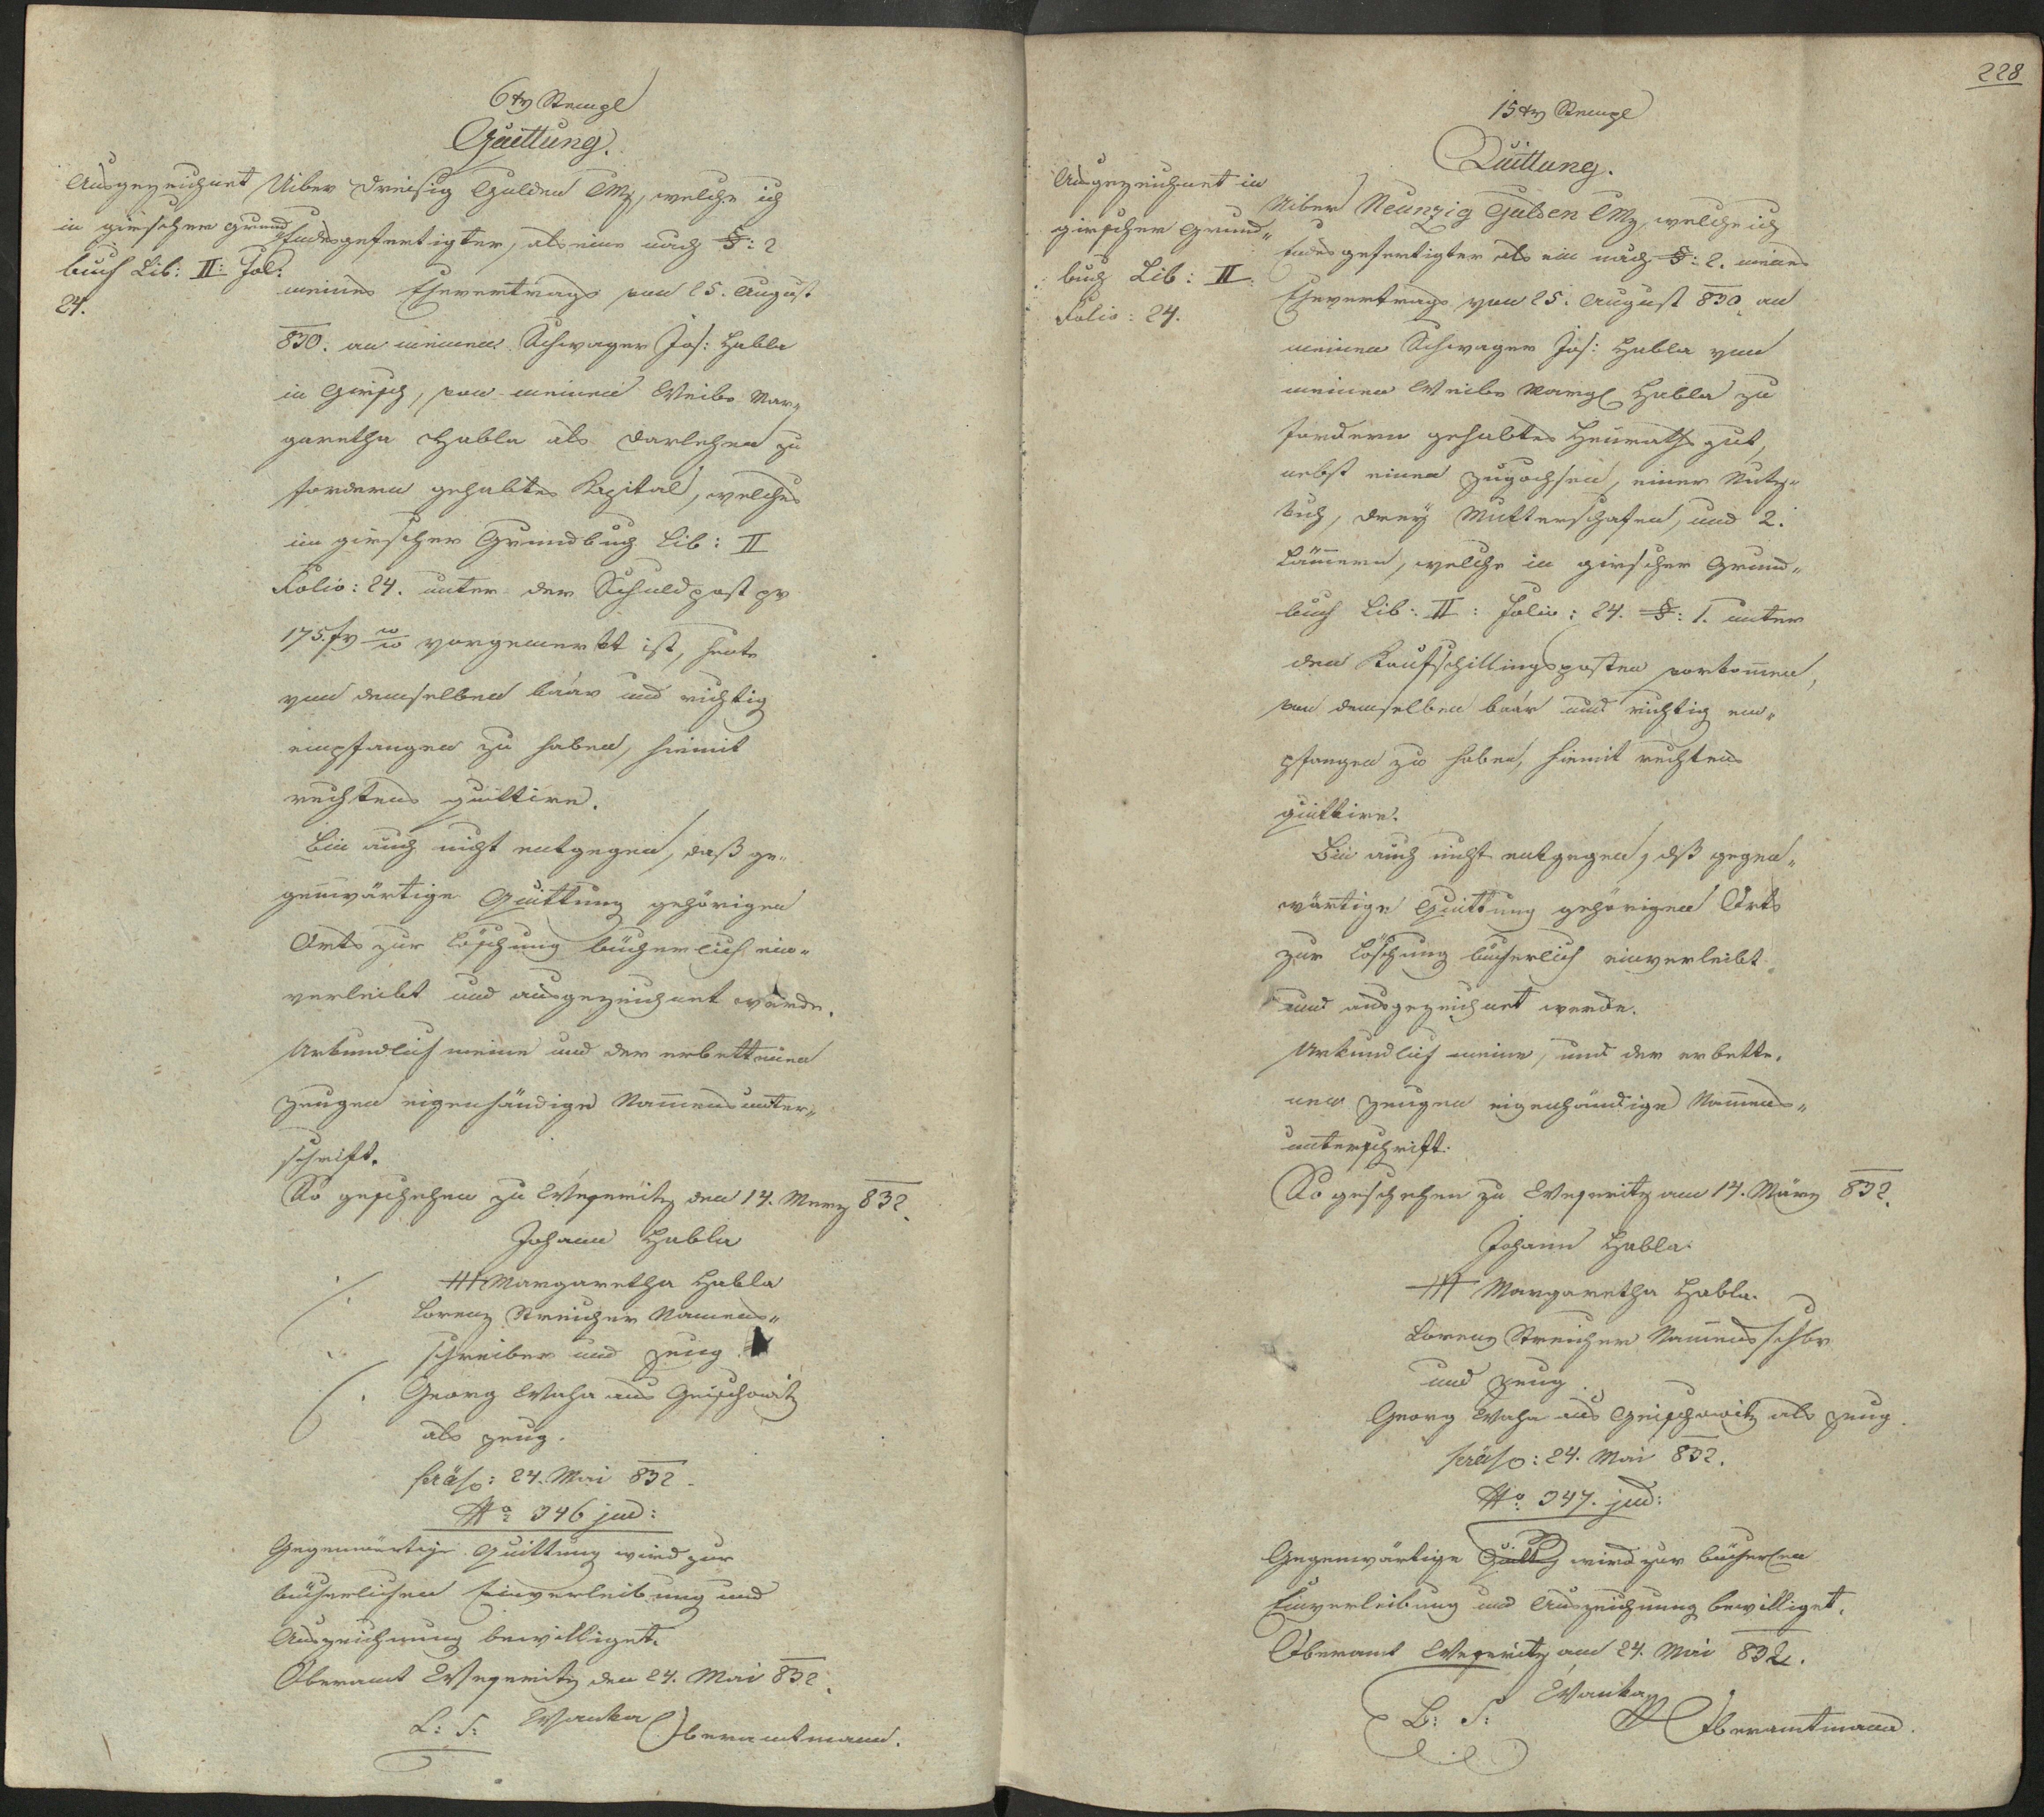 6 xr Stempl
Quittung.
Ausgezeichnet
in girscher Grund
buch Lib: II: Fol:
24.
Uiber dreißig Gulden CMz, welche ich
Endesgefertigter, als eine nach §: 2
meines Ehevertrags vom 25. August
830. an meinen Schwager Jos: Habla
in Girsch, von meinem Weibe Mar¬
garetha Habla als Darlehen zu
fordern gehabtes Kapital, welches
im girscher Grundbuch Lib: II
Folio: 24. unter der Schuldpost pr
175 fr vorgemerkt ist, heute
von demselben baar und richtig
empfangen zu haben, hiemit
rechtens quittire.
Bin auch nicht entgegen, daß ge„
genwärtige Quittung gehörigen
Orts zur Löschung bücherlich ein„
verleibt und ausgezeichnet werde.
Urkundlich meine und der erbettenen
Zeugen eigenhändige Namensunter„
schrift.
So geschehen zu Weseritz den 14. Merz 832.
Johann Habla
+++ Margaretha Habla
Lorenz Streicher Namens„
schreiber und Zeug
Georg Waha aus Geischowitz
als Zeug.
Präs: 24. Mai 832.
No: 346 jud:
Gegenwärtige Quittung wird zur
bücherlichen Einverleibung und
Auszeichnung bewilliget.
Oberamt Weseritz den 24. Mai 832.
L: S: Wanka Oberamtmann.
228
15 xr Stempl
Quittung.
Ausgezeichnet in
girscher Grund„
buch Lib: II:
Folio: 24.
Uiber Neunzig Gulden CMz, welche ich
Endesgefertigter als ein nach §: 2. meines
Ehevertrags vom 25. August 830. an
meinen Schwager Jos: Habla von
meinem Weibe Margl Habla zu
fordern gehabtes Heurathsgut,
nebst einen Zugochsen, einer Nutz„
kuh, drey Mutterschafen, und 2.
Lämmern, welche in girscher Grund„
buch Lib: II: Folio: 24. §: 1. unter
den Kaufschillingsposten vorkommen,
von demselben baar und richtig em„
pfangen zu haben, hiemit rechtens
quittire.
Bin auch nicht entgegen, dß gegen„
wärtige Quittung gehörigen Orts
zur Löschung bücherlich einverleibt
und ausgezeichnet werde.
Urkundlich meine, und der erbette„
nen Zeugen eigenhändige Namens„
unterschrift.
So geschehen zu Weseritz am 14. März 832.
Johann Habla.
+++ Margaretha Habla.
Lorenz Streicher Namensschbr
und Zeug
Georg Waha aus Geischowitz als Zeug.
Präs: 24. Mai 832.
No: 347. jud:
Gegenwärtige Quittg wird zur bücherlen
Einverleibung und Auszeichnung bewilliget.
Oberamt Weseritz am 24. Mai 832.
L: S: Wanka
Oberamtmann.